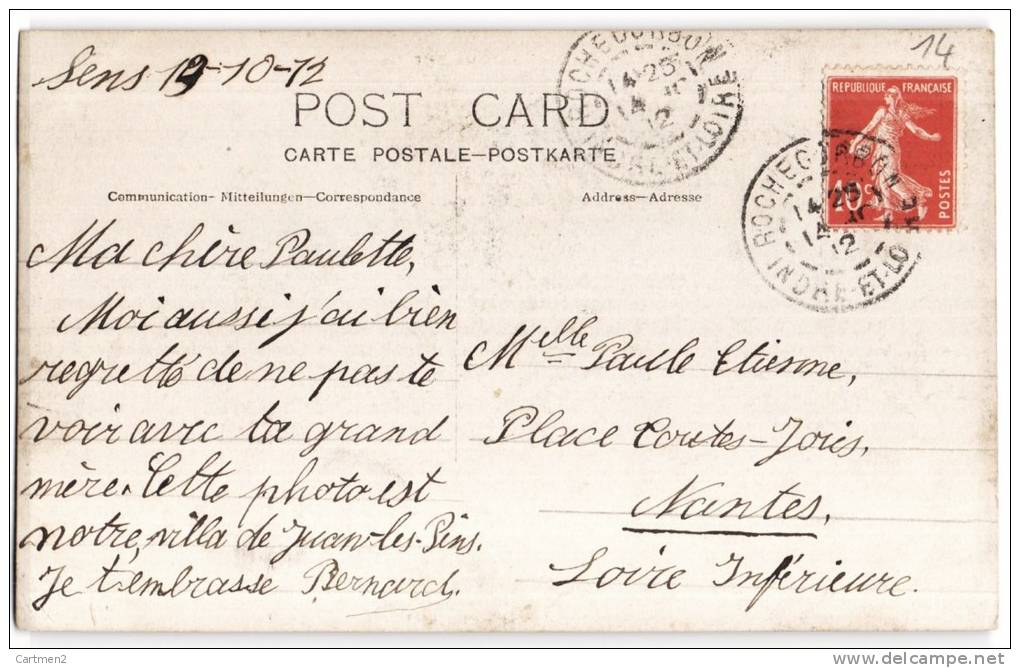 14
Sens 13-10-12
POST CARD
CARTE POSTALE—POSTKARTE
Communication - Mitteilungen—Correspondance
Address—Adresse
RÉPUBLIQUE FRANÇAISE
10c
POSTES
ROCHECORBON
14 25
14
12
INDRE-ET-LOIRE
ROCHECORBON
14 25
14
12
INDRE-ET-LOIRE
Ma chère Paulette,
Moi aussi j'ai bien
regretté de ne pas te
voir avec ta grand
mère. Cette photo est
notre villa de Juan-les-Pins.
Je t'embrasse Bernard.
Melle Paule Etienne,
Place Toutes-Joies,
Nantes,
Loire Inférieure.
Cartmen2
delcampe.net